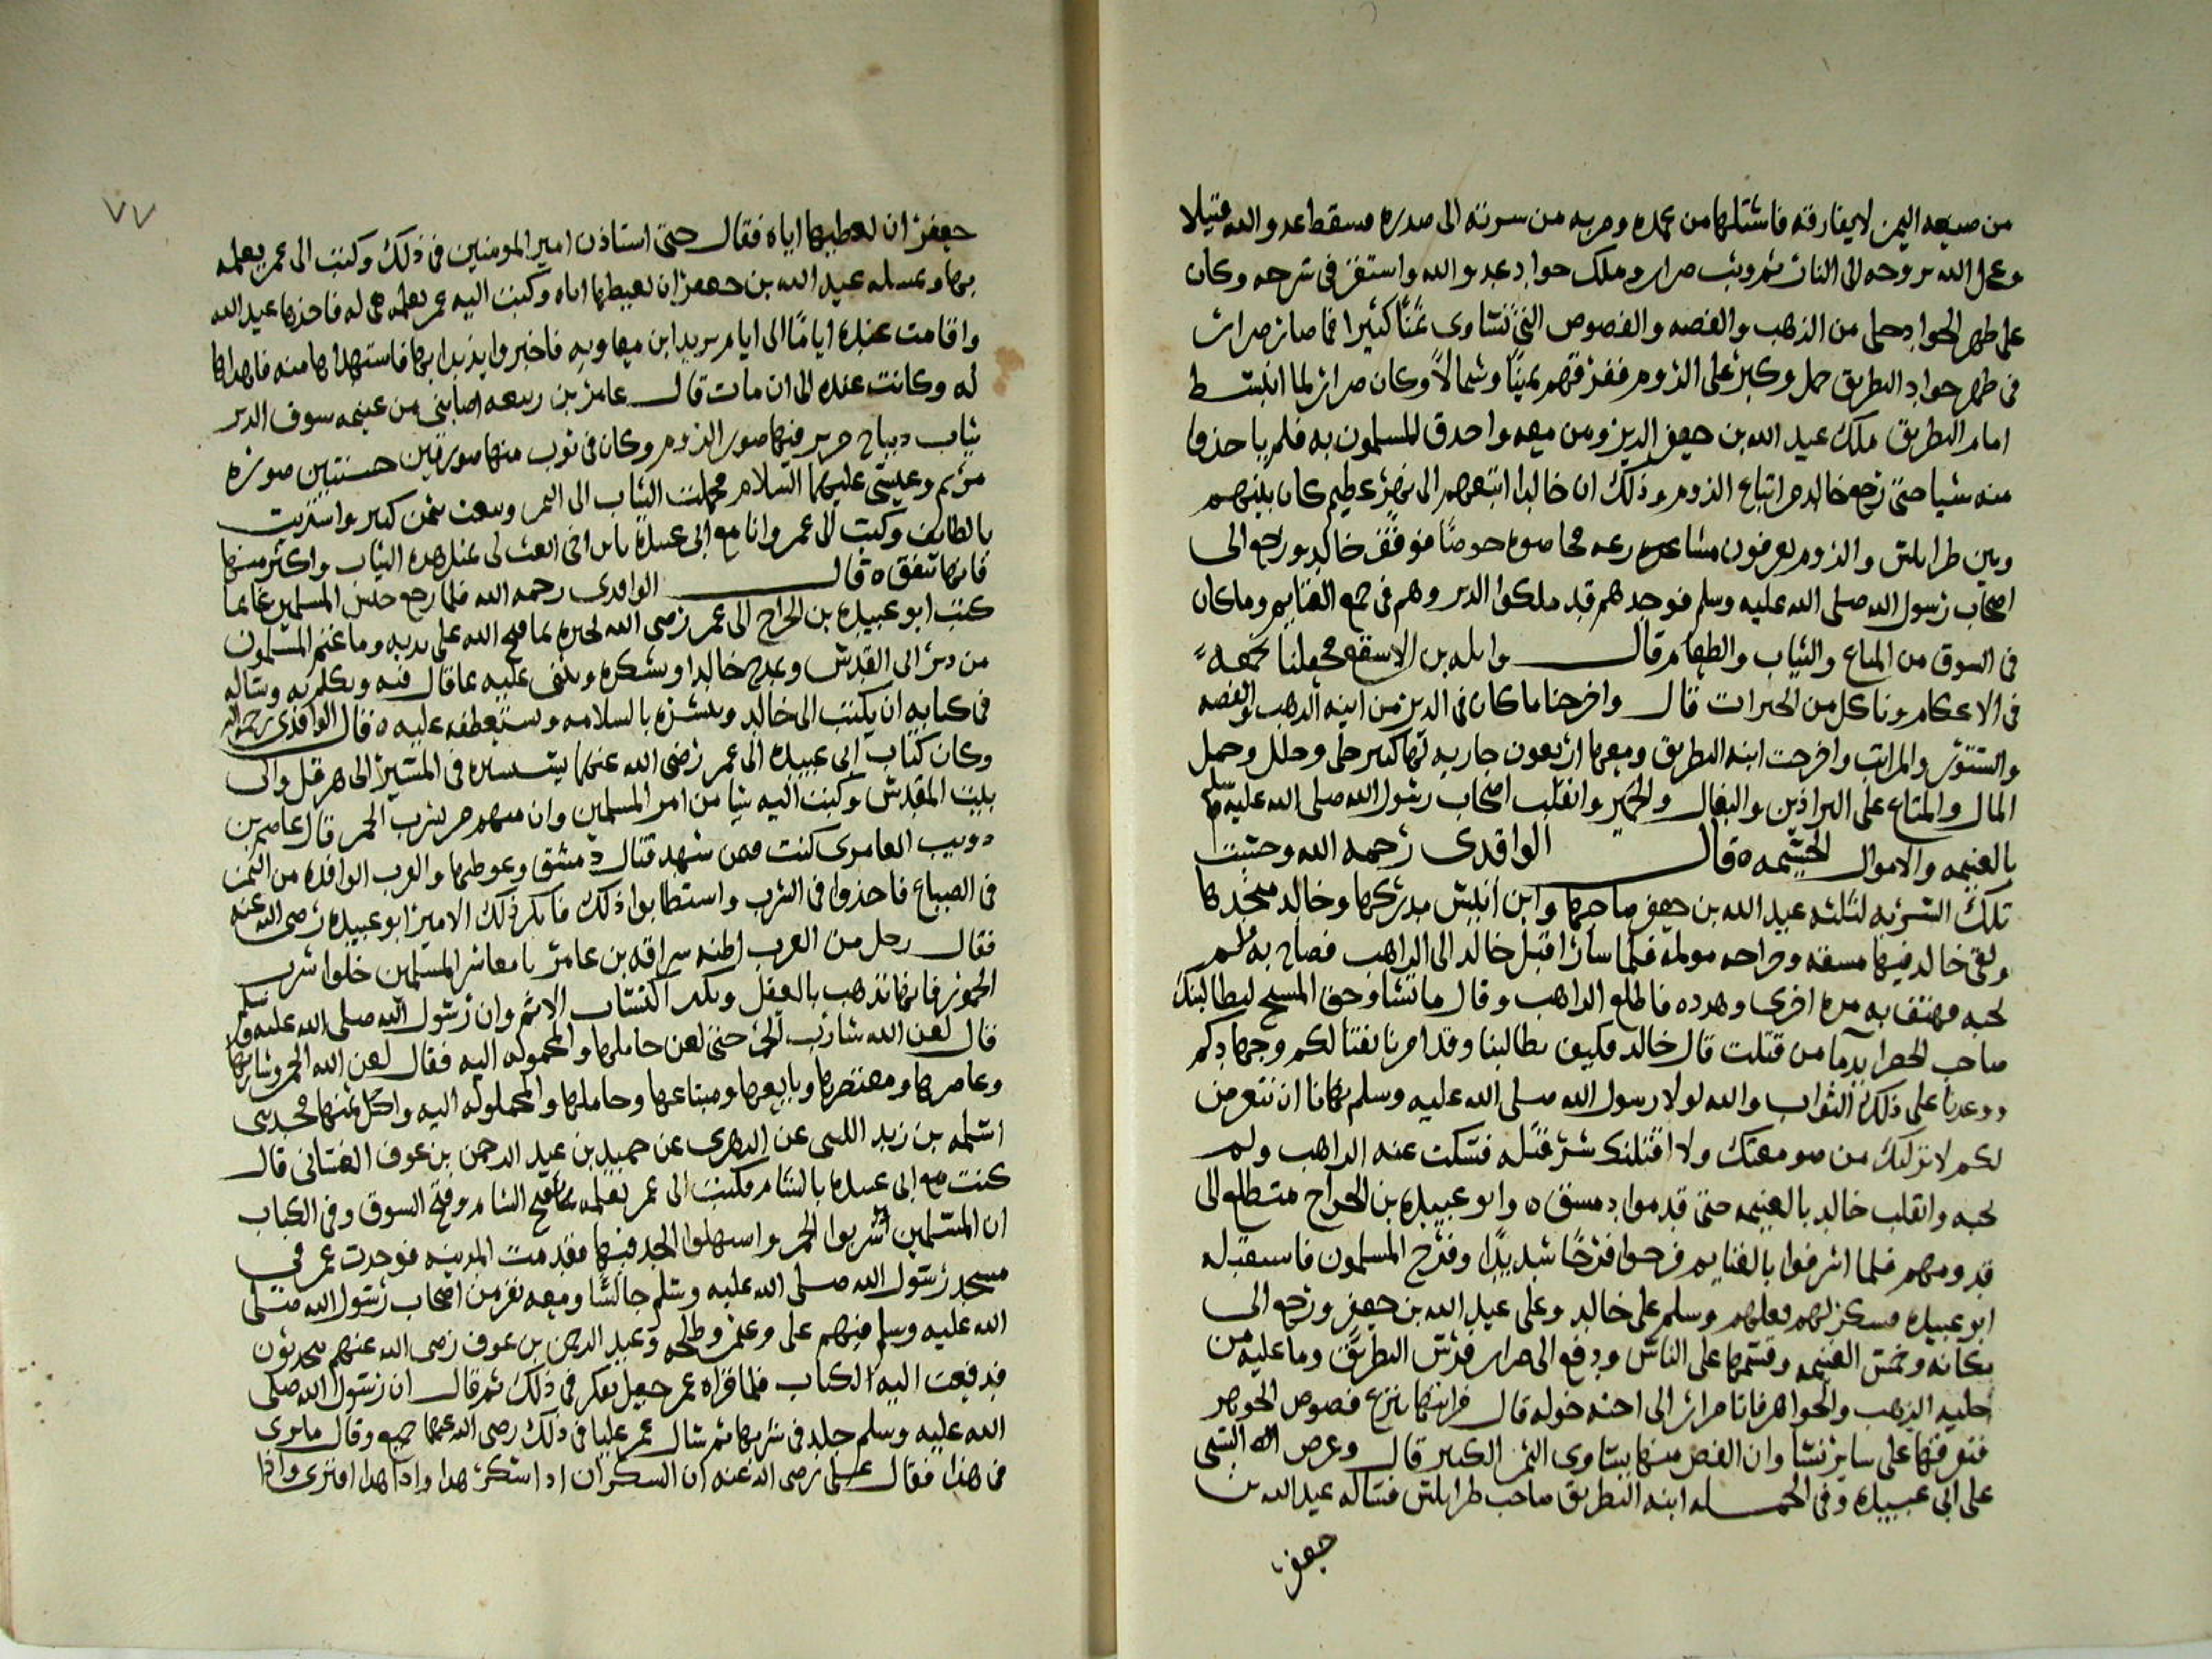 من صيعه اليمن لا يفارقه فاستلها من غمده وضربه من سرته الى صدره فسقط عدو الله قتيلا
وعجل الله بروحه الى النار ثم وثب ضرار وملك جواد عدو الله واستقر في سرجه وكان
على ظهر الجواد حملى من الذهب والفضه والفصوص التي تساوى ثمنا كثيرا فما صار ضرار
في ظهر جواد البطريق حمل وكبر على الروم ففرقهم يمينا وشمالا وكان ضرار لما انبسط
امام البطريق ملك عبد الله بن جعفر الدير ومن معه واحدق المسلمون به فلم ياخذوا
منه شيا حتى رجع خالد من اتباع الروم وذلك ان خالدا اتبعهم الى نهر عظيم كان بينهم
وبين طرابلس والروم يعرفون مشاعره فخاضوه خوضا فوقف خالد ورجع الى
اصحاب رسول الله صلى الله عليه وسلم فوجدهم قد ملكوا الدير وهم في جمع الغنايم وما كان
في السوق من المتاع والثياب والطعام قال واثله بن الاسقع فجعلنا نجمعه
في الاعكام وناكل من الخيرات قال واخرجنا ما كان في الدير من انيه الذهب والفضه
والستور والمراتب واخرجت ابنه البطريق ومعها اربعون جاريه لها كثير حلى وحلل وحمل
المال والمتاع على البراذين والبغال والحمير وانقلب اصحاب رسول الله صلى الله عليه وسلم
بالغنيمه والاموال الجسيمه ٥ قال الواقدى رحمه الله وحسبت
تلك السريه لثلثه عبد الله بن جعفر صاحبها وابن انيس مدركها وخالد منجدها
ولقى خالد فيها مشقه وجراحه مولمه فلما سار اقبل خالد الى الراهب فصاح به فلم
يجبه فهتف به مره اخرى وهدده فاطلع الراهب وقال ما تشا وحق المسيح ليطالبنك
صاحب الخضرا بدما من قتلت قال خالد فكيف يطالبنا وقد امرنا بقتالكم وجهادكم
ووعدنا على ذلك الثواب والله لولا رسول الله صلى الله عليه وسلم نهانا ان نتعرض
لكم لانزلتك من صومعتك ولا اقتلنك شر قتله فسكت عنه الراهب ولم
يجبه وانقلب خالد بالغنيمه حتى قدموا دمشق ٥ وابو عبيده بن الجراح متطلع الى
قدومهم فلما اشرفوا بالغنايم فرحوا فرحا شديدا وفرح المسلمون فاستقبله
ابو عبيده فشكر لهم فعلهم وسلم على خالد وعلى عبد الله بن جعفر ورجع الى
مكانه وخمس الغنيمه وقسمها على الناس ودفع الى ضرار فرس البطريق وما عليه من
حليه الذهب والجواهر فاتا ضرار الى اخته خوله قال فرايتها تنزع فصوص الجوهر
فتفرقها على ساير نسا وان الفص منها يساوى الثمن الكبير قال وعرض السبى
على ابى عبيده وفي الجمله ابنه البطريق صاحب طرابلس فساله عبد الله بن
جعفر
٧٧
جعفر ان يعطيها اياه فقال حتى استاذن امير المومنين في ذلك وكتب الى عمر يعلمه
بها وبمسله عبد الله بن جعفر ان يعطيها اياه وكتب اليه عمر يعلمه هى له فاخذها عبد الله
واقامت عنده اياما الى ايام يزيد ابن معاويه فاخبروا يزيدا بها فاستهداها منه فاهداها
له وكانت عنده الى ان مات قال عامر بن ربيعه اصابنى من غنيمه سوق الدير
ثياب ديباج حرير فيها صور الروم وكان في ثوب منها صورتين حسنتين صوره
مريم وعيسى عليهما السلام فحملت الثياب الى اليمن وبيعت بثمن كبير واشتريت
بالطايف وكتب الى عمر وانا مع ابى عبيده يابن اخى ابعث لى مثل هذه الثياب واكثر منها
فانها تنفق ٥ قال الواقدى رحمه الله فلما رجع جيش المسلمين غانما
كتب ابو عبيده بن الجراح الى عمر رضى الله يخبره بما فتح الله على يديه وما غنم المسلمون
من دير الى القدس ومدح خالدا وشكره ويثنى عليه بما قال فيه وتكلم به وساله
في كتابه ان يكتب الى خالد ويبشره بالسلامه ويستعطفه عليه ٥ قال الواقدى رحمه الله
وكان كتاب ابى عبيده الى عمر رضى الله عنهما يستشيره في المسير الى هرقل والى
بيت المقدس وكتب اليه شيا من امر المسلمين وان منهم من يشرب الخمر قال عاصم بن
دويب العامرى كنت فمن شهد قتال دمشق وغوطها والعرب الوافده من اليمن
في الضياع فاخذوا في الشرب واستطابوا ذلك فانكر ذلك الامير ابو عبيده رضى الله عنه
فقال رجل من العرب اظنه سراقه بن عامر يا معاشر المسلمين خلوا شرب
الخمور فانها تذهب بالعقل وبكثر اكتساب الاثم وان رسول الله صلى الله عليه وسلم
قال لعن الله شارب الخمر حتى لعن حاملها والمحموله اليه فقال لعن الله الخمر وشاربها
وعاصرها ومعتصرها وبايعها ومبتاعها وحاملها والمحموله اليه واكل ثمنها فحدثنى
اسامه بن زيد الليثى عن الزهرى عن حميد بن عبد الرحمن بن عوف الغسانى قال
كنت مع ابى عبيده بالشام فكتب الى عمر يعلمه بما فتح الشام وفتح السوق وفي الكتاب
ان المسلمين شربوا الخمر واستهلوا الحد فيها فقدمت المدينه فوجدت عمر في
مسجد رسول الله صلى الله عليه وسلم جالسا ومعه نفر من اصحاب رسول الله صلى
الله عليه وسلم فيهم على وعثمن وطلحه وعبد الرحمن بن عوف رضى الله عنهم يتحدثون
فدفعت اليه الكتاب فلما قراه عمر جعل يفكر في ذلك ثم قال ان رسول الله صلى
الله عليه وسلم جلد في شربها ثم سال عمر عليا في ذلك رضى الله عنهما جميع وقال ما ترى
في هذا فقال على رضى الله عنه ان السكران اذا اسكر هذا واذا هذا افترى واذا